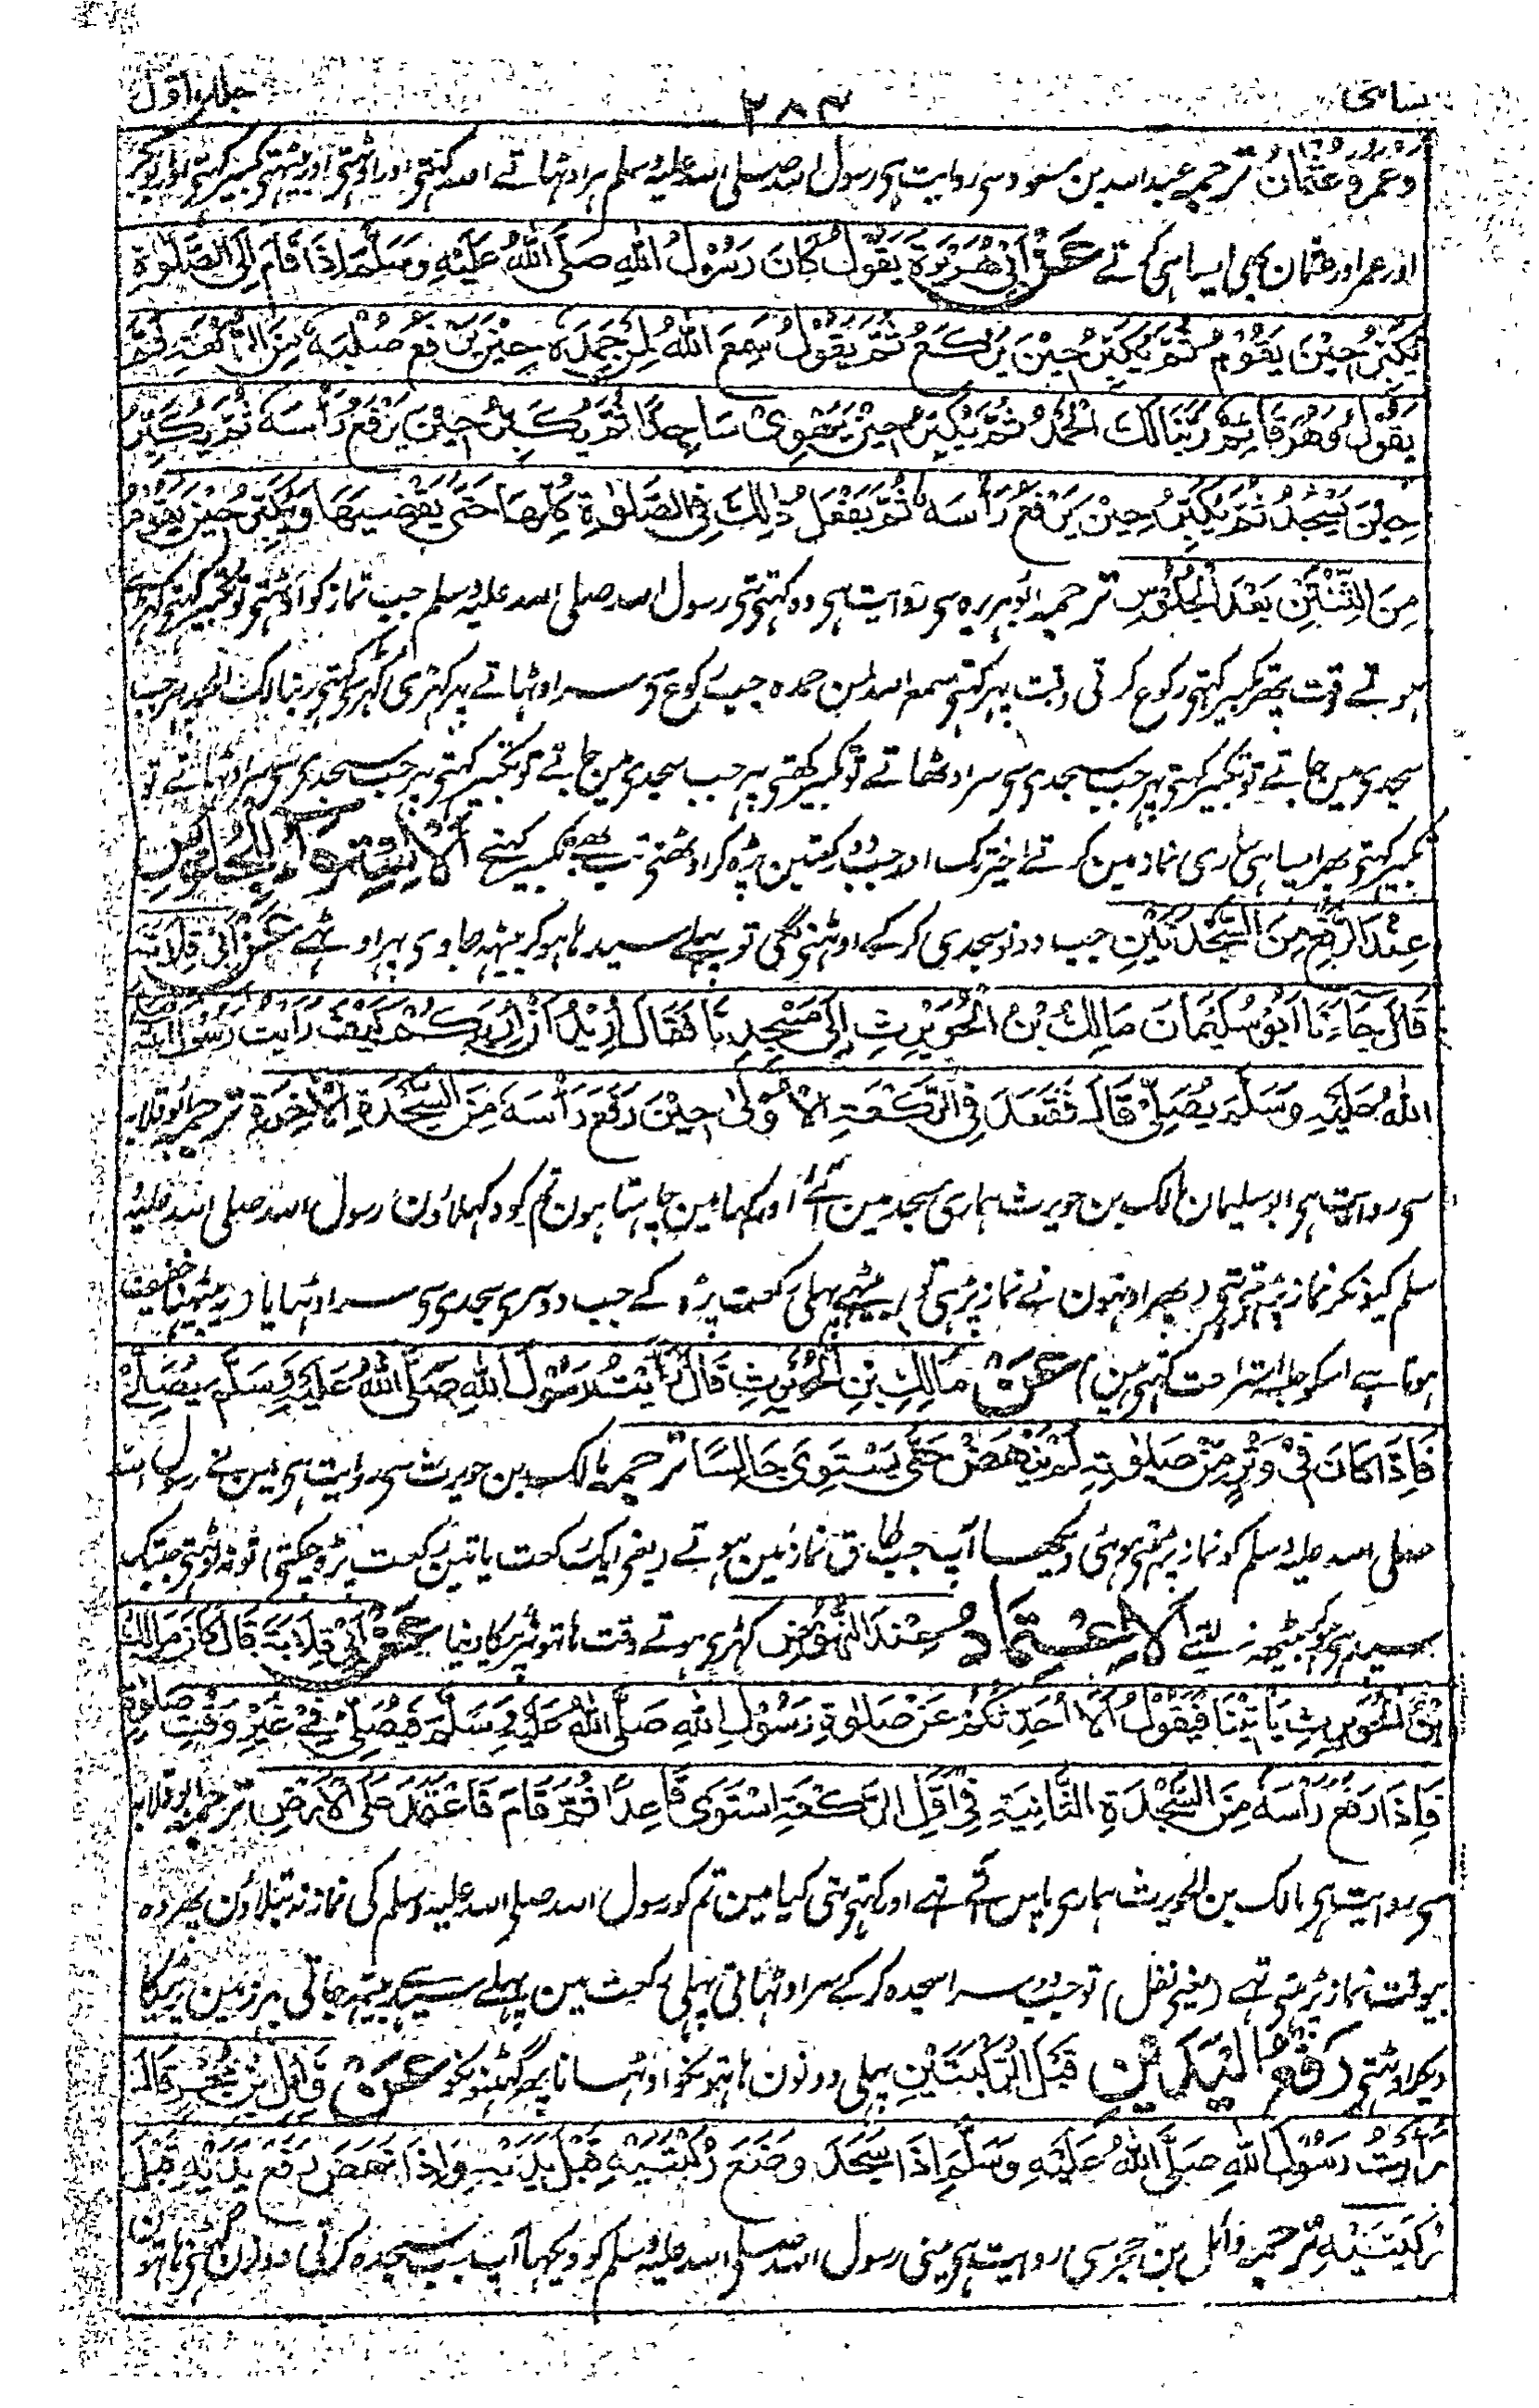 نسائی ۲۸۴ جلد اول
وَعُمَرُ وَعُثْمَانُ ترجمہ عبد اللہ بن مسعود سی روایت ہی رسول اللہ صلی اللہ علیہ وسلم ہر اوٹہانے اللہ کہتی اور اوٹہتی اور بیٹہتی تکبیر کہتی اور ابوبکر
اور عمر اور عثمان بھی ایسا ہی کرتے عَنْ أَبِي هُرَيْرَةَ يَقُولُ كَانَ رَسُولُ اللهِ صَلَّى اللهُ عَلَيْهِ وَسَلَّمَ إِذَا قَامَ إِلَى الصَّلٰوةِ
يُكَبِّرُ حِيْنَ يَقُوْمُ ثُمَّ يُكَبِّرُ حِيْنَ يَرْكَعُ ثُمَّ يَقُوْلُ سَمِعَ اللهُ لِمَنْ حَمِدَهُ حِيْنَ يَرْفَعُ صُلْبَهُ مِنَ الرَّكْعَةِ ثُمَّ
يَقُوْلُ وَهُوَ قَائِمٌ رَبَّنَا لَكَ الْحَمْدُ ثُمَّ يُكَبِّرُ حِيْنَ يَهْوِىْ سَاجِدًا ثُمَّ يُكَبِّرُ حِيْنَ يَرْفَعُ رَأْسَهُ ثُمَّ يُكَبِّرُ
حِيْنَ يَسْجُدُ ثُمَّ يُكَبِّرُ حِيْنَ يَرْفَعُ رَأْسَهُ ثُمَّ يَفْعَلُ ذٰلِكَ فِي الصَّلٰوةِ كُلِّهَا حَتّٰى يَقْضِيَهَا وَيُكَبِّرُ حِيْنَ يَقُوْمُ
مِنَ الثِّنْتَيْنِ بَعْدَ الْجُلُوْسِ ترجمہ ابو ہریرہ سی روایت ہی وہ کہتی تہی رسول اللہ صلی اللہ علیہ وسلم جب نماز کو اوٹہتی تو تکبیر کہتی کہڑے
ہوتے وقت پھر تکبیر کہتی رکوع کرتی وقت پہر کہتی سمع اللہ لمن حمدہ جب رکوع سی سر اوٹہاتے پہر کہڑی کہڑی کہتی ربنا لک الحمد پہر جب
سجدی مین جاتے تو تکبیر کہتی پہر جب سجدی سی سر اوٹھاتے تو تکبیر کہتی پہر جب سجدی مین جاتے تو تکبیر کہتی پہر جب سجدی سی سر اوٹہاتے تو
تکبیر کہتی پھر ایسا ہی ساری نماز مین کرتے اخیر تک اور جب دو رکعتین پڑہ کر اوٹھتی تب بھی تکبیر کہتے اَلْاِسْتِوَاءُ لِلْجُلُوْسِ
عِنْدَ الرَّفْعِ مِنَ السَّجْدَتَيْنِ جب دونو سجدی کر کے اوٹہنی لگی تو پہلے سیدہا ہو کر بیٹہہ جاوی پہر اوٹہے عَنْ أَبِيْ قِلَابَةَ
قَالَ جَاءَنَا اَبُوْ سُلَيْمَانَ مَالِكُ بْنُ الْحُوَيْرِثِ اِلٰى مَسْجِدِنَا فَقَالَ اُرِيْدُ اَنْ اُرِيَكُمْ كَيْفَ رَاَيْتُ رَسُوْلَ اللهِ صلی
اللهُ عَلَيْهِ وَسَلَّمَ يُصَلِّيْ قَالَ فَقَعَدَ فِي الرَّكْعَةِ الْاُوْلٰى حِيْنَ رَفَعَ رَأْسَهُ مِنَ السَّجْدَةِ الْاٰخِرَةِ ترجمہ ابو قلابہ
سی روایت ہی ابو سلیمان مالک بن حویرث ہماری مسجد مین آئے اور کہا مین چاہتا ہون تم کو دکہلاؤن رسول اللہ صلی اللہ علیہ
سلم کیونکر نماز پڑہتی تہی (پھر اونہون نے نماز پڑہی) تو بیٹہے پہلی رکعت پڑہ کے جب دوسری سجدی سی سر اوٹہایا (یہ بیٹہنا خفیف
ہوتا ہے اسکو جلسہ استراحت کہتی ہین) عَنْ مَالِكِ بْنِ الْحُوَيْرِثِ قَالَ رَاَيْتُ رَسُوْلَ اللهِ صَلَّى اللهُ عَلَيْهِ وَسَلَّمَ يُصَلِّيْ
فَاِذَا كَانَ فِيْ وِتْرٍ مِّنْ صَلٰوتِهٖ لَمْ يَنْهَضْ حَتّٰى يَسْتَوِيَ جَالِسًا ترجمہ مالک بن حویرث سی روایت ہی مین نے رسول اللہ
صلی اللہ علیہ وسلم کو نماز پڑہتی ہوئی دیکھا آپ جب طاق نماز مین ہوتے (یعنی ایک رکعت یا تین رکعت پڑہ چکتی) تو نہ اوٹہتی جبتک
سیدہی ہو کر بیٹہہ نہ لیتے اَلْاِعْتِمَادُ عِنْدَ النُّهُوْضِ کہڑی ہوتے وقت ہاتہو پر ٹیکا دنیا عَنْ اَبِيْ قِلَابَةَ قَالَ كَانَ مَالِكُ
بْنُ الْحُوَيْرِثِ يَأْتِيْنَا فَيَقُوْلُ اَلَا اُحَدِّثُكُمْ عَنْ صَلٰوةِ رَسُوْلِ اللهِ صَلَّى اللهُ عَلَيْهِ وَسَلَّمَ فَيُصَلِّيْ فِيْ غَيْرِ وَقْتِ صَلٰوةٍ
فَاِذَا رَفَعَ رَأْسَهُ مِنَ السَّجْدَةِ الثَّانِيَةِ فِيْ اَوَّلِ الرَّكْعَةِ اسْتَوٰى قَاعِدًا ثُمَّ قَامَ فَاعْتَمَدَ عَلَى الْاَرْضِ ترجمہ ابو قلابہ
سی روایت ہی مالک بن الحویرث ہماری پاس آتے تہے اور کہتی تہی کیا مین تم کو رسول اللہ صلی اللہ علیہ وسلم کی نماز نہ بتلاؤن پھر وہ
بیوقت نماز پڑہتی تہے (یعنی نفل) تو جب دوسرا سجدہ کر کے سر اوٹہاتی پہلی رکعت مین پہلے سیدہے بیٹہہ جاتی پہر زمین پر ٹیکا
دیکر اوٹہتی رَفْعُ الْيَدَيْنِ قَبْلَ الرُّكْبَتَيْنِ پہلی دونون ہاتہونکو اوٹہانا پھر گہٹنونکو عَنْ وَائِلِ بْنِ حُجْرٍ قَالَ
رَاَيْتُ رَسُوْلَ اللهِ صَلَّى اللهُ عَلَيْهِ وَسَلَّمَ اِذَا سَجَدَ وَضَعَ رُكْبَتَيْهِ قَبْلَ يَدَيْهِ وَاِذَا نَهَضَ رَفَعَ يَدَيْهِ قَبْلَ
رُكْبَتَيْهِ ترجمہ وائل بن حجر سی روایت ہی مینی رسول اللہ صلی اللہ علیہ وسلم کو دیکہا آپ جب سجدہ کرتی دونون گہٹنی ہاتہون